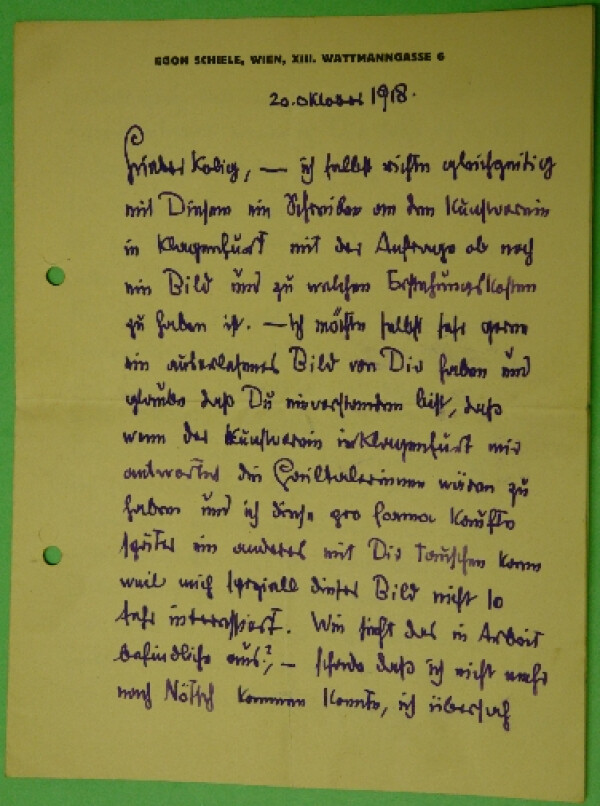 EGON SCHIELE, WIEN, XIII. WATTMANNGASSE 6
20. Oktober 1918.
Lieber Kolig, — ich selbst richte gleichzeitig
mit Diesem ein Schreiben an den Kunstverein
in Klagenfurt mit der Anfrage ob noch
ein Bild und zu welchen Erstehungskosten
zu haben ist. — ich möchte selbst sehr gerne
ein auserlesenes Bild von Dir haben und
glaube daß Du einverstanden bist, daß
wenn der Kunstverein in Klagenfurt mir
antwortet die Gailtalerinnen wären zu
haben und ich diese pro forma kaufte
später ein anderes mit Dir tauschen kann
weil mich speziell dieses Bild nicht so
sehr interessiert. Wie sieht das in Arbeit
befindliche aus?, — schade daß ich nicht mehr
nach Nötsch kommen konnte, ich übersah